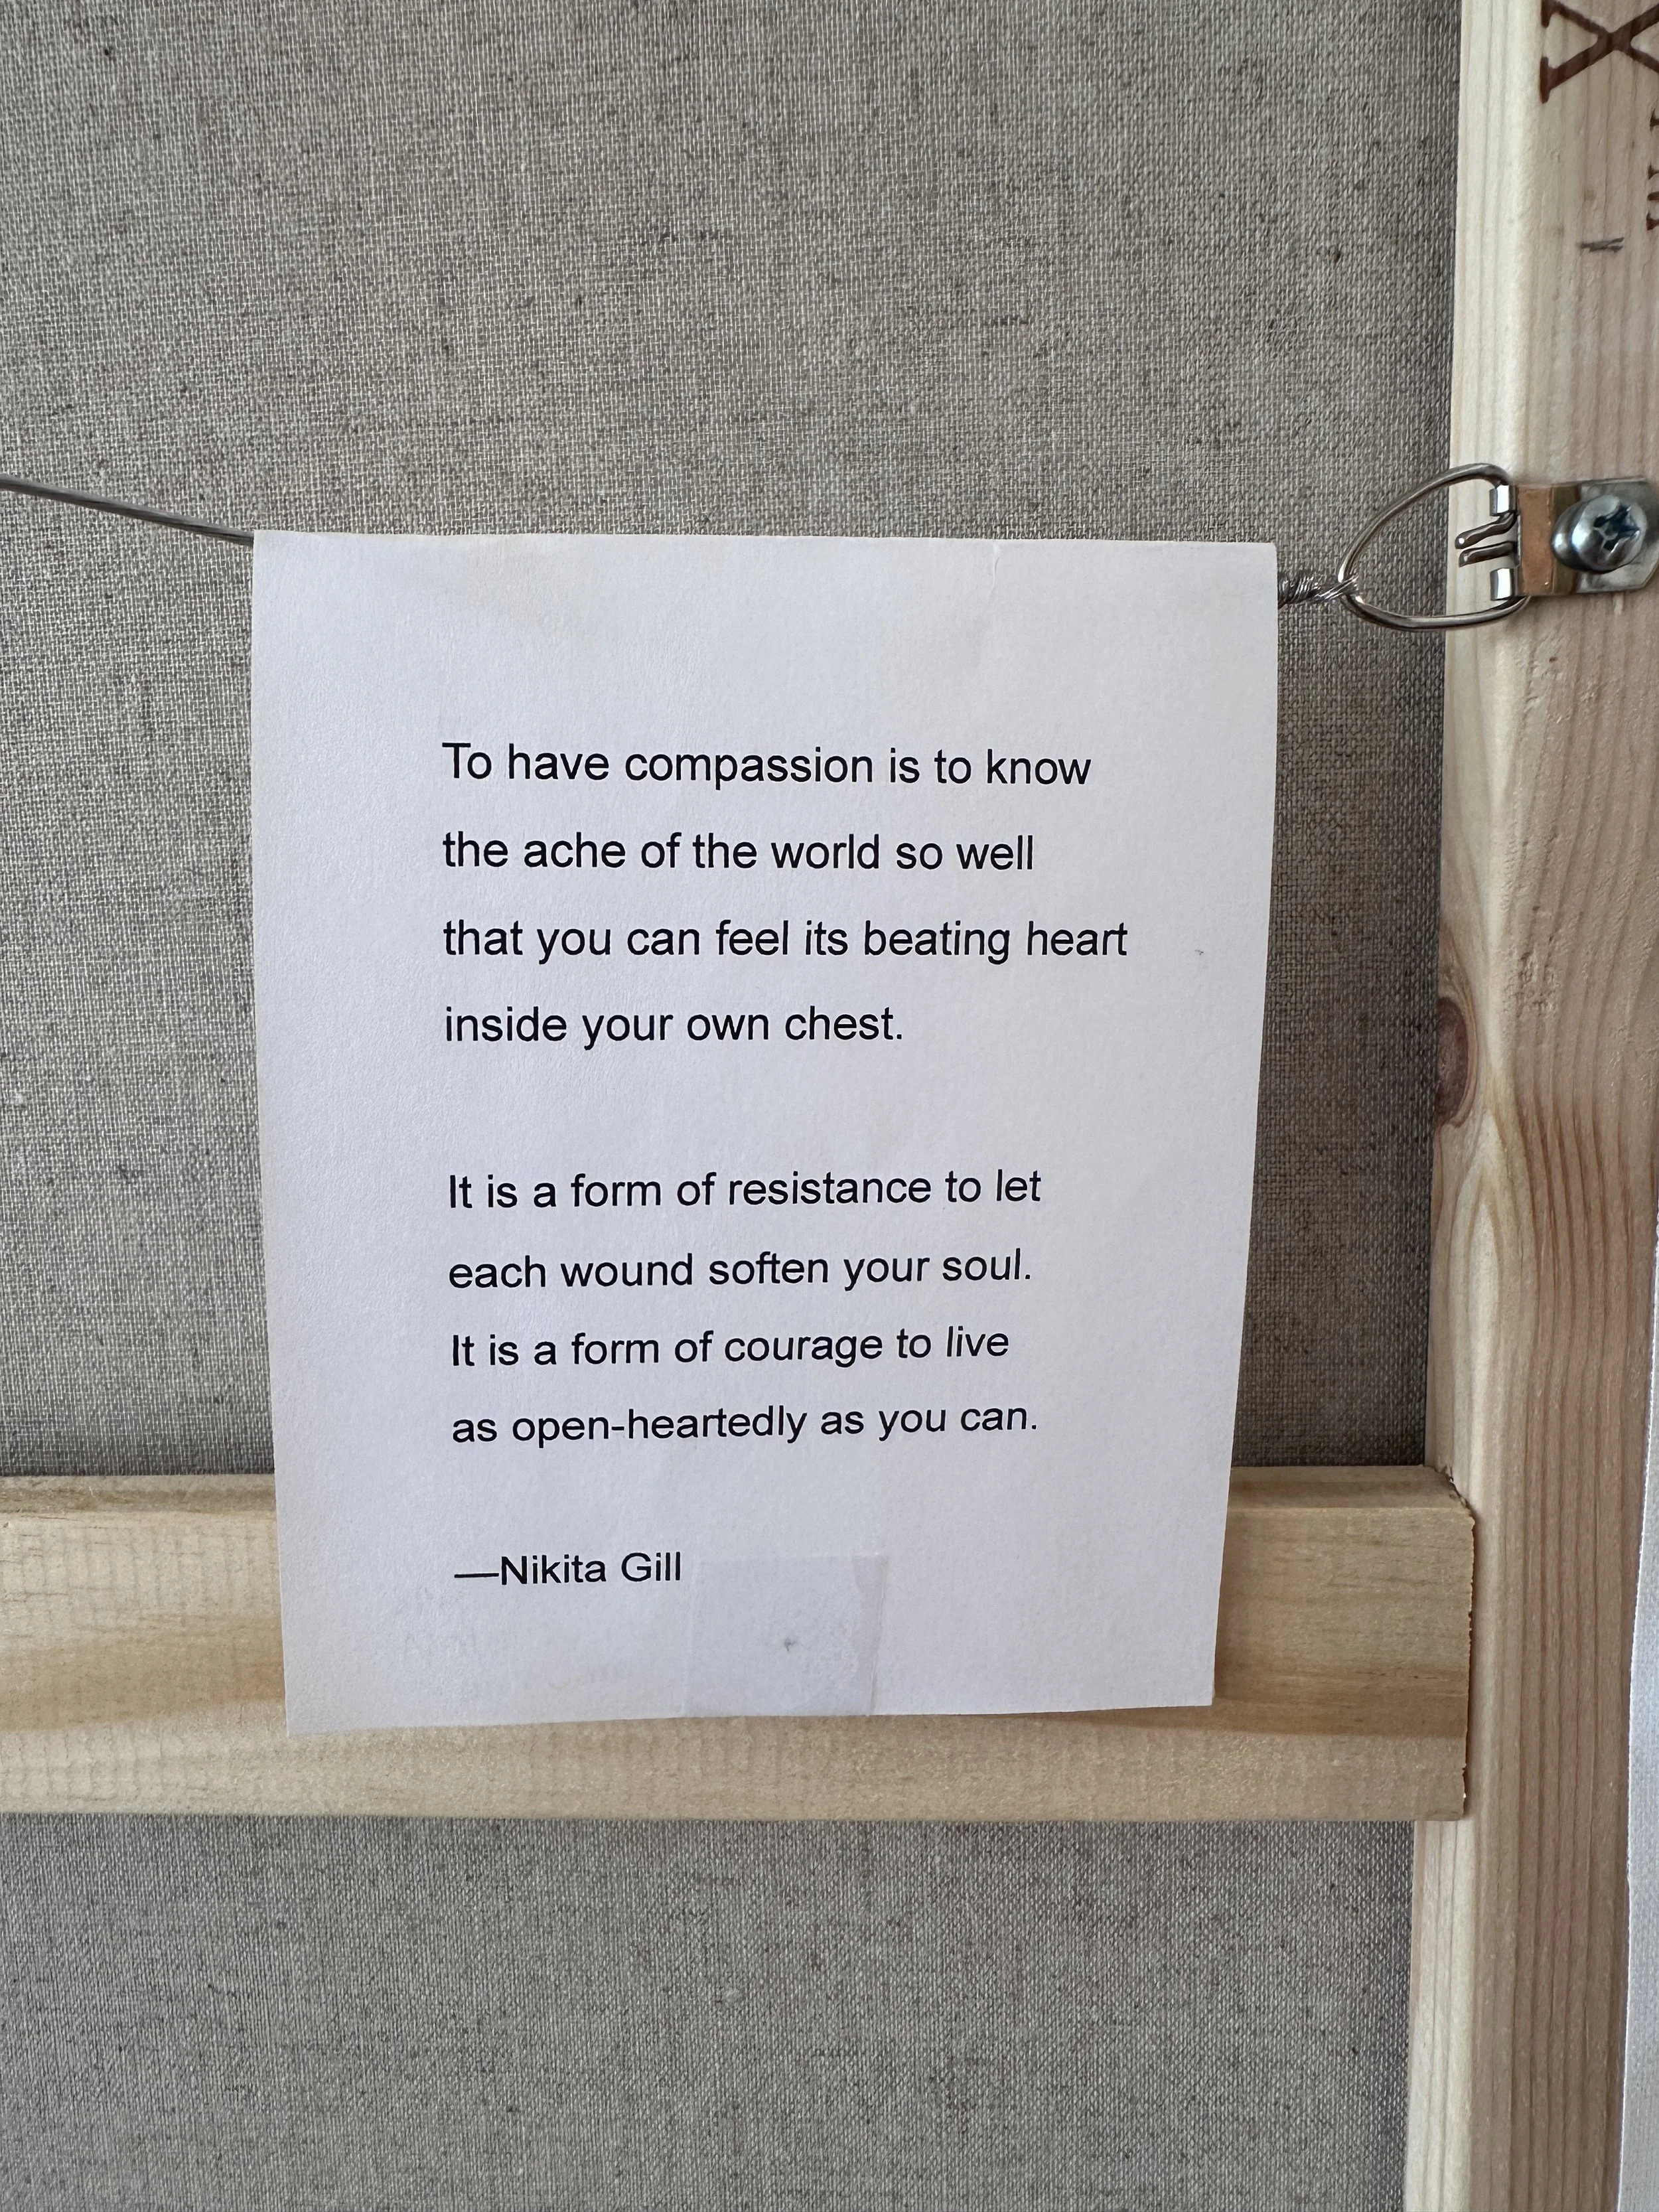 To have compassion is to know
the ache of the world so well
that you can feel its beating heart
inside your own chest.
It is a form of resistance to let
each wound soften your soul.
It is a form of courage to live
as open-heartedly as you can.
—Nikita Gill